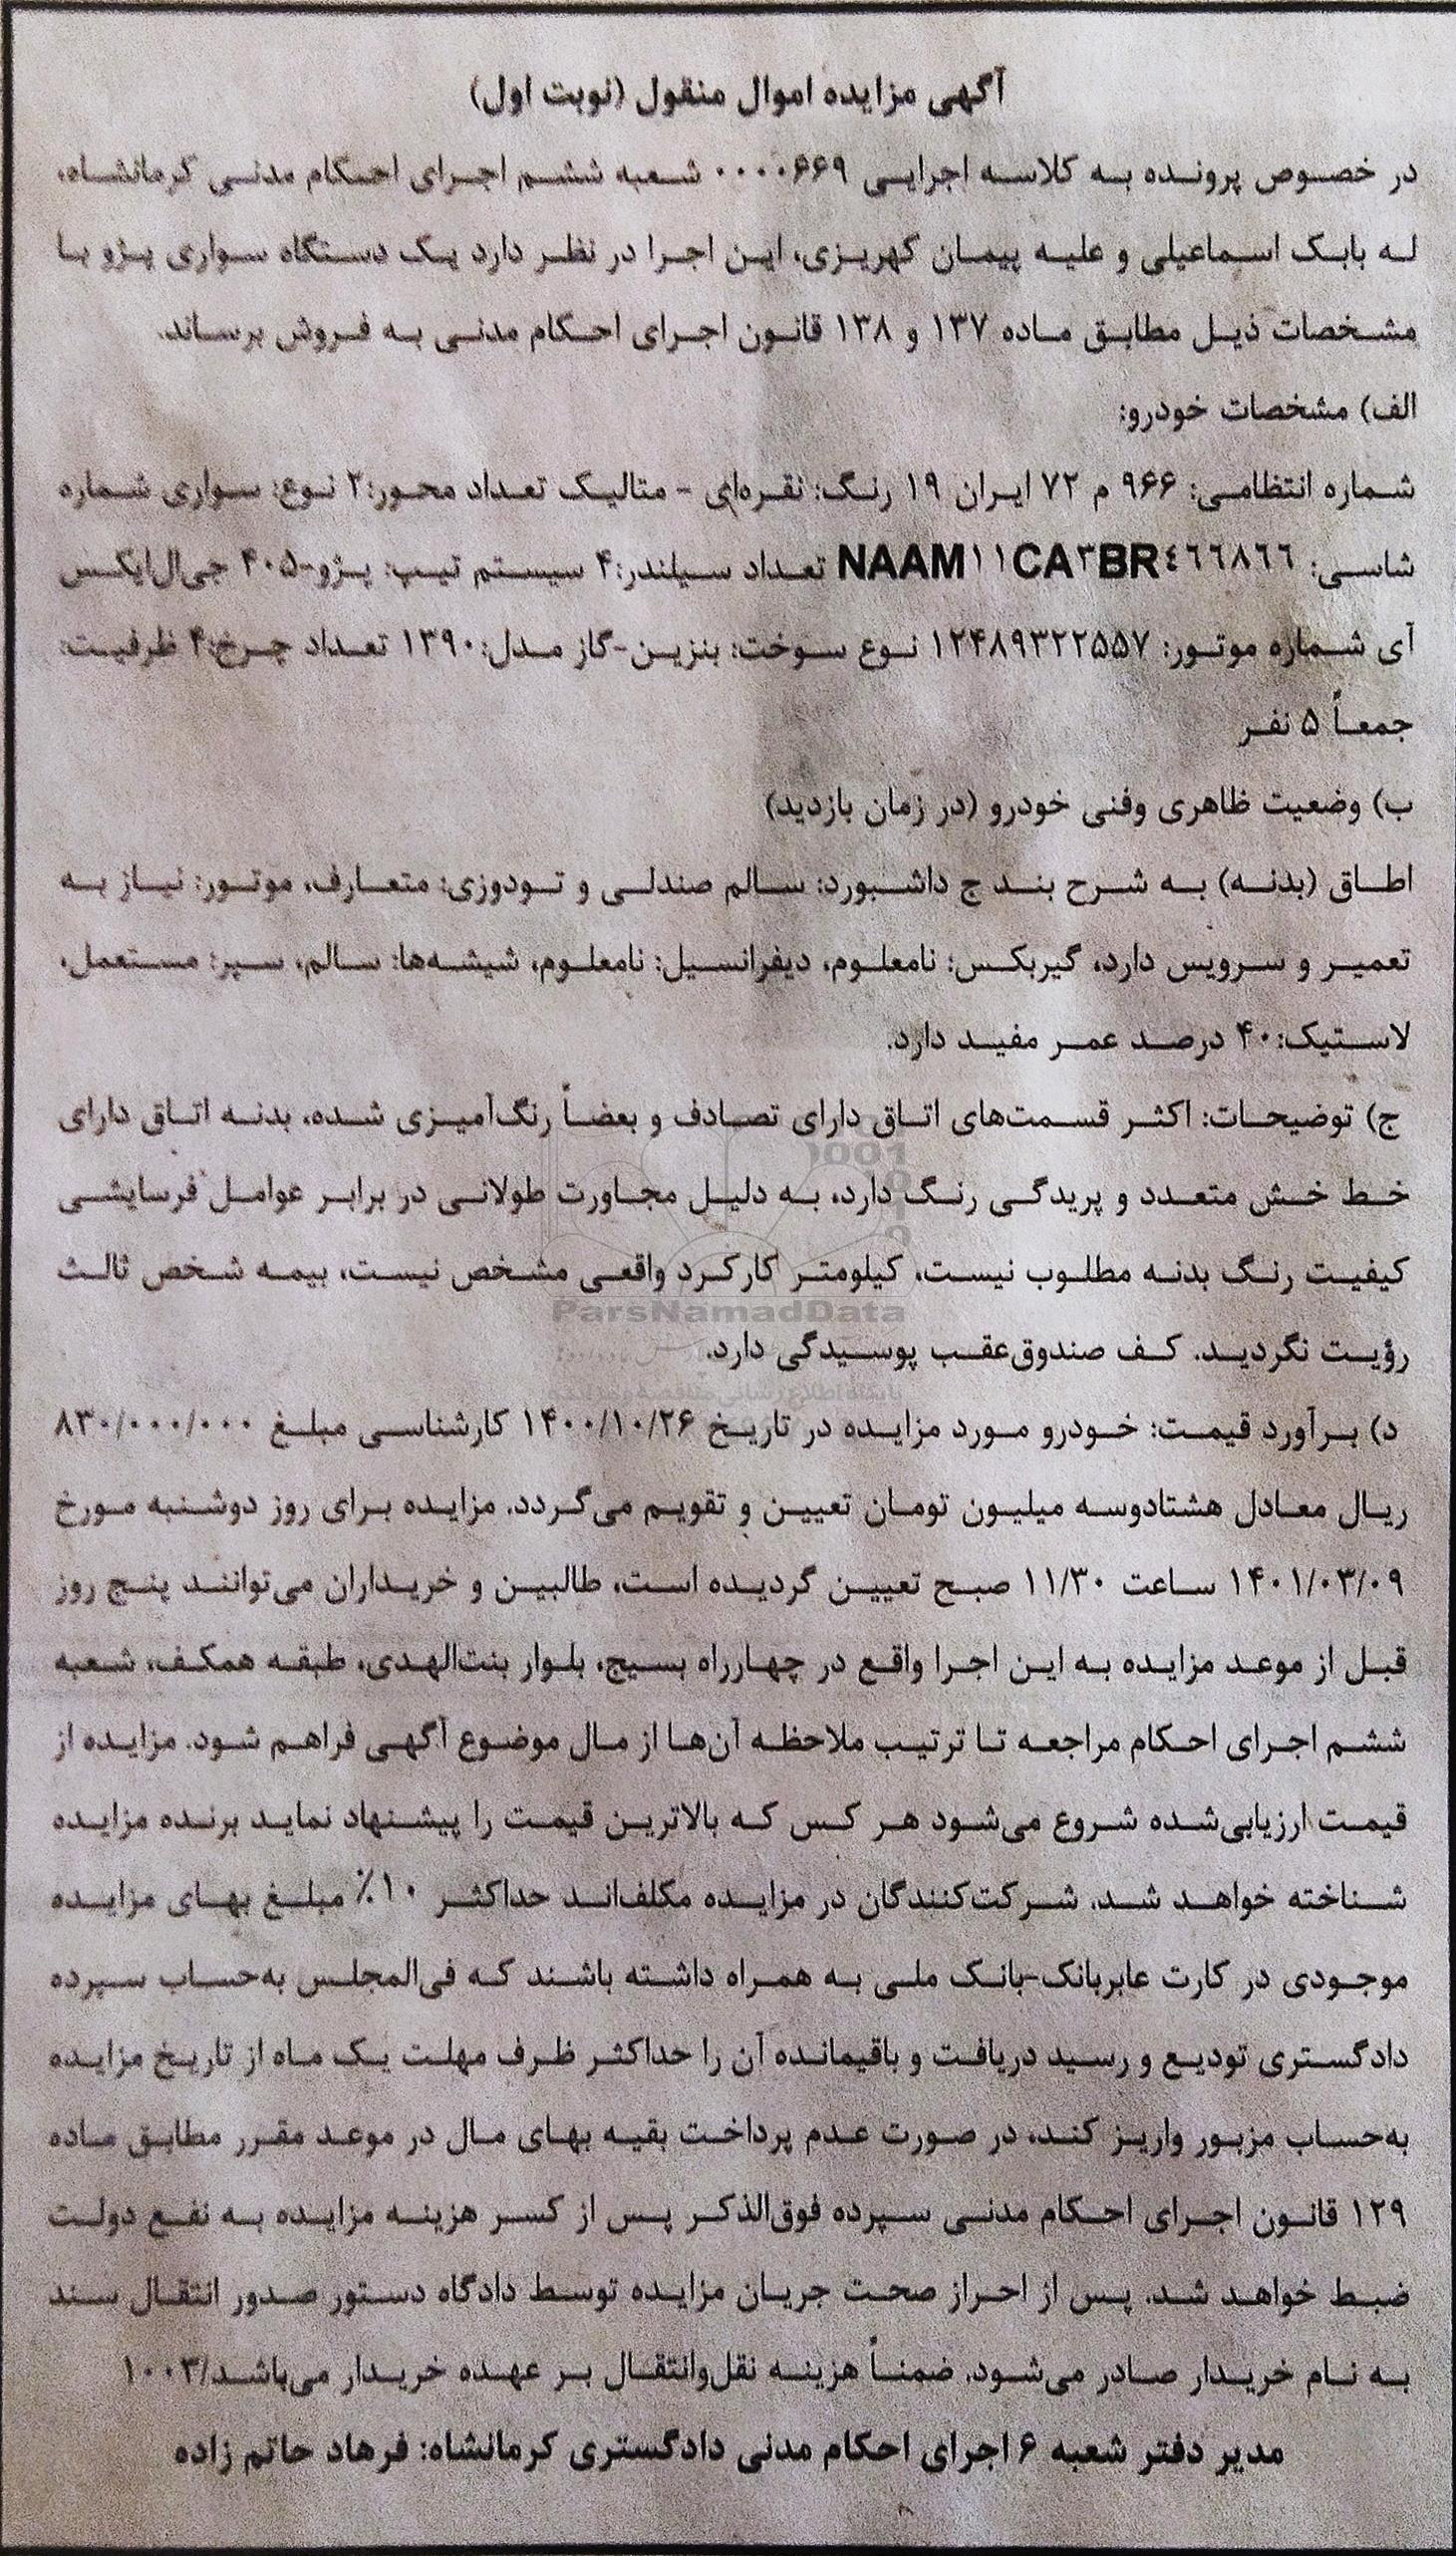 آگهی مزایده اموال منقول (نوبت اول)
در خصوص پرونده به کلاسه اجرایی ۰۰۰۰۶۶۹ شعبه ششم اجرای احکام مدنی کرمانشاه،
له بابک اسماعیلی و علیه پیمان کهریزی، این اجرا در نظر دارد یک دستگاه سواری پژو با
مشخصات ذیل مطابق ماده ۱۳۷ و ۱۳۸ قانون اجرای احکام مدنی به فروش برساند.
الف) مشخصات خودرو:
شماره انتظامی: ۹۶۶ م ۷۲ ایران ۱۹ رنگ: نقره‌ای - متالیک تعداد محور:۲ نوع: سواری شماره
شاسی: NAAM۱۱CA۳BR٤٦٦٨٦٦ تعداد سیلندر:۴ سیستم تیپ: پژو-۴۰۵ جی‌ال‌ایکس
آی شماره موتور: ۱۲۴۸۹۳۲۲۵۵۷ نوع سوخت: بنزین-گاز مدل:۱۳۹۰ تعداد چرخ:۴ ظرفیت:
جمعاً ۵ نفر
ب) وضعیت ظاهری وفنی خودرو (در زمان بازدید)
اطاق (بدنه) به شرح بند ج داشبورد: سالم صندلی و تودوزی: متعارف، موتور: نیاز به
تعمیر و سرویس دارد، گیربکس: نامعلوم، دیفرانسیل: نامعلوم، شیشه‌ها: سالم، سپر: مستعمل،
لاستیک:۴۰ درصد عمر مفید دارد.
ج) توضیحات: اکثر قسمت‌های اتاق دارای تصادف و بعضاً رنگ‌آمیزی شده، بدنه اتاق دارای
خط خش متعدد و پریدگی رنگ دارد، به دلیل مجاورت طولانی در برابر عوامل فرسایشی
کیفیت رنگ بدنه مطلوب نیست، کیلومتر کارکرد واقعی مشخص نیست، بیمه شخص ثالث
ParsNamadData
رؤیت نگردید. کف صندوق‌عقب پوسیدگی دارد.
د) برآورد قیمت: خودرو مورد مزایده در تاریخ ۱۴۰۰/۱۰/۲۶ کارشناسی مبلغ ۸۳۰/۰۰۰/۰۰۰
ریال معادل هشتادوسه میلیون تومان تعیین و تقویم می‌گردد. مزایده برای روز دوشنبه مورخ
۱۴۰۱/۰۳/۰۹ ساعت ۱۱/۳۰ صبح تعیین گردیده است، طالبین و خریداران می‌توانند پنج روز
قبل از موعد مزایده به این اجرا واقع در چهارراه بسیج، بلوار بنت‌الهدی، طبقه همکف، شعبه
ششم اجرای احکام مراجعه تا ترتیب ملاحظه آن‌ها از مال موضوع آگهی فراهم شود. مزایده از
قیمت ارزیابی‌شده شروع می‌شود هر کس که بالاترین قیمت را پیشنهاد نماید برنده مزایده
شناخته خواهد شد. شرکت‌کنندگان در مزایده مکلف‌اند حداکثر ۱۰٪ مبلغ بهای مزایده
موجودی در کارت عابربانک-بانک ملی به همراه داشته باشند که فی‌المجلس به‌حساب سپرده
دادگستری تودیع و رسید دریافت و باقیمانده آن را حداکثر ظرف مهلت یک ماه از تاریخ مزایده
به‌حساب مزبور واریز کند، در صورت عدم پرداخت بقیه بهای مال در موعد مقرر مطابق ماده
۱۲۹ قانون اجرای احکام مدنی سپرده فوق‌الذکر پس از کسر هزینه مزایده به نفع دولت
ضبط خواهد شد. پس از احراز صحت جریان مزایده توسط دادگاه دستور صدور انتقال سند
به نام خریدار صادر می‌شود. ضمناً هزینه نقل‌وانتقال بر عهده خریدار می‌باشد/۱۰۰۳
مدیر دفتر شعبه ۶ اجرای احکام مدنی دادگستری کرمانشاه: فرهاد حاتم زاده